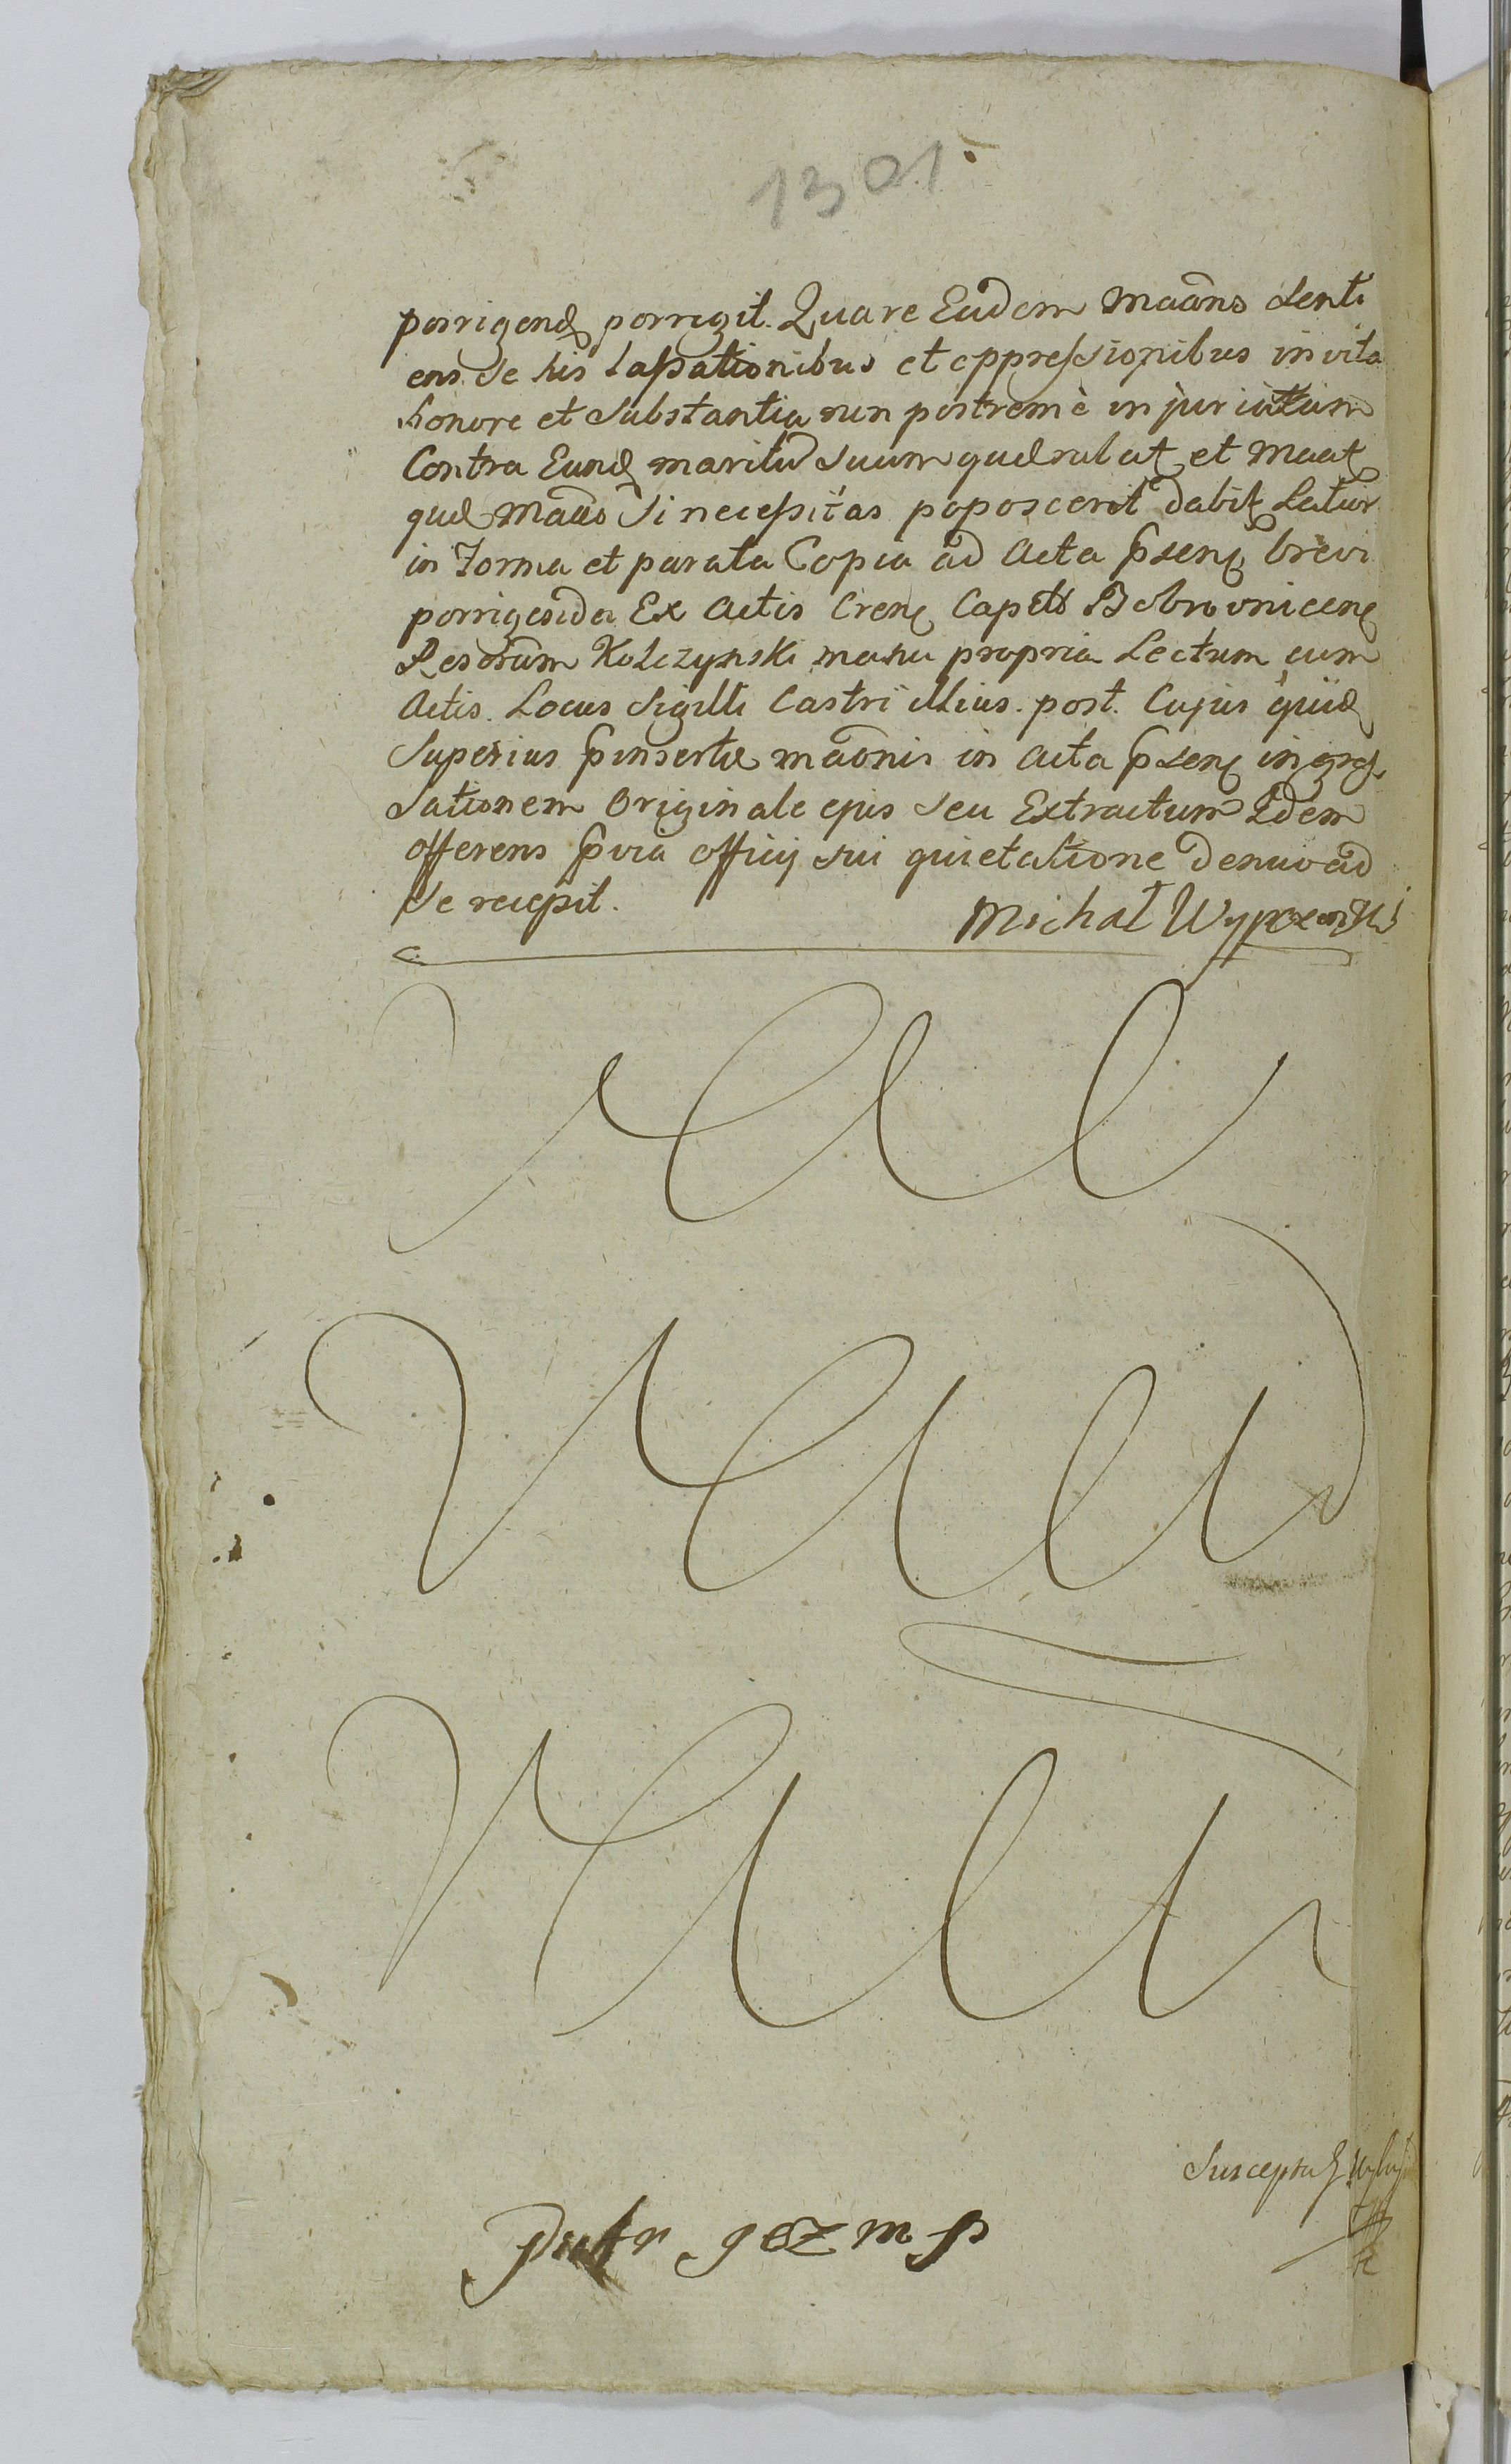 1301.
porrigend porrigit. Quare Eadem Maans senti
ens de his lassationibus et oppressionibus in vita
honore et substantia nun postremè injuriatam
Contra Eund maritū suum quærulat et Maat
quæ Maāo si necessitas poposcerit dabit Latior
in Forma et parata Copia ad Acta psen brevi
porrigenda Ex Actis Cren Capłł Bobrovnicen
Resorum Kolczynski manu propria Lectum cum
Actis. Locus Sigilli Castri illius. post. Cujus quid
Superius pinsertæ maonis in Acta psen ingros
sationem Originale ejus seu Extractum Idem
offerens pvia officij sui quietatione denuo ad
se recepit.
Michał
Suscepta